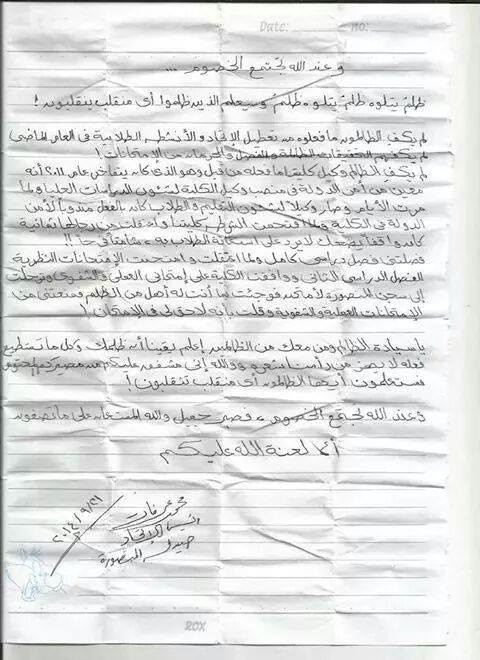 Date: no:
وعند الله تجتمع الخصوم ...
ظلمٌ يتلوه ظلمٌ يتلوه ظلمٌ وسيعلم الذين ظلموا أى منقلب ينقلبون !
لم يكف الظالمون ما فعلوه من تعطيل الاتحاد والأنشطه الطلابية فى العام الماضى
لم يكفهم التحقيقات الظالمة والفصل والحرمان من الإمتحانات !
لم يكف الظالم وكيل كليتنا ما فعله من قبل وهو الذى كان يتفاخر عام ٢٠١١ أنه
معين من أمن الدولة فى منصب وكيل الكلية لشئون الدراسات العليا ولما
مرت الأيام وصار وكيلا لشئون التعليم والطلاب كان بالفعل مندوباً لأمن
الدولة فى الكلية ولما اقتحمت الشرطه كليتنا واعتقلت من داخلها ثمانية
كان واقفاً يضحك لا يرد على استغاثة الطلاب به ، شامتاً فرحاً !!
فصلتنى فصل دراسى كامل ولما اعتقلت وامتحنت الإمتحانات النظرية
الفصل الدراسى الثانى ووافقت الكلية على إمتحانى العملى والشفوى ونزلت
إلى سجن المنصورة لأمتحن فوجئت بما أنت له أهل من الظلم فمنعتنى من
الإمتحانات العملية والشفوية وقلت بأنه لا حق لى فى الإمتحان !
يا سيادة الظالم ومن معك من الظالمين إعلم يقيناً أنه ظلمك وكل ما تستطيع
فعله لا يهز من رأسنا شعره ووالله إنى مشفق عليكم من مصيركم المحتوم
ستعلمون أيها الظالمون أى منقلب تنقلبون !
وعند الله تجتمع الخصوم ، فصبر جميل والله المستعان على ما تصفون
ألا لعنة الله عليكم
محمد عرفات
الاتحاد
صيدلة المنصورة
٢٠١٤/٩/٢١
20X